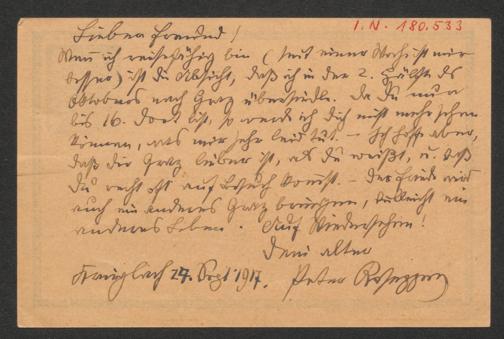 I.N. 180.533
Lieber Freund!
Wenn ich reisefähig bin (seit einer Woche ist mir
besser) ist die Absicht, daß ich in der 2. Hälfte des
Oktobers nach Graz übersiedle. Da Du nur
bis 16. dort bist, so werde ich Dich nicht mehr sehen
können, was mir sehr leid tut. – Ich hoffe aber,
daß Dir Graz lieber ist, als Du weißt, u. daß
Du recht oft auf Besuch kommst. – Der Friede wird
auch ein anderes Graz bringen, vielleicht ein
anderes Leben. Auf Wiedersehen!
Dein alter
Krieglach 27. Sept 1917. Peter Rosegger